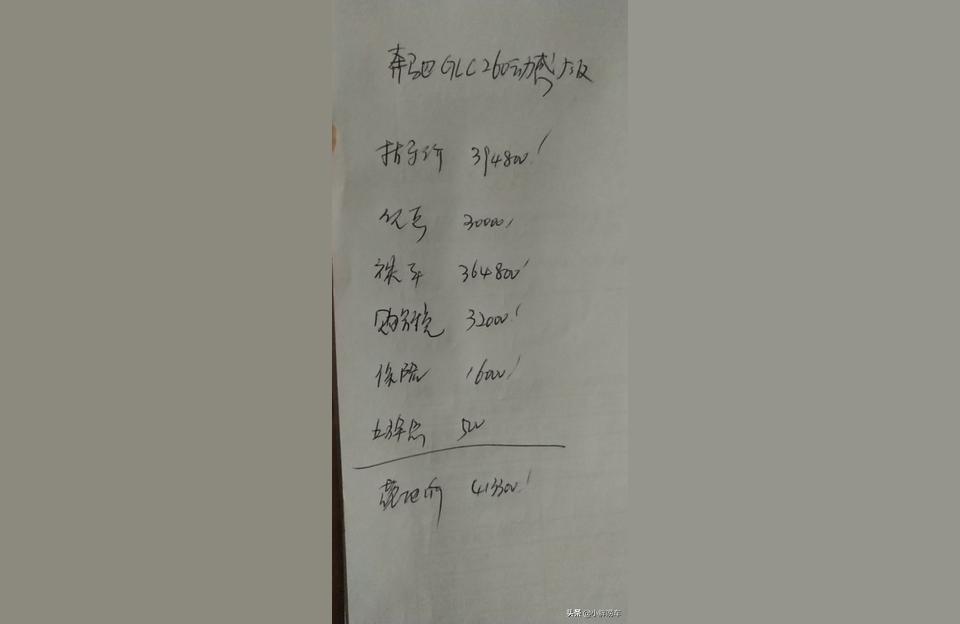 奔驰GLC260动感版
指导价 394800
优惠 30000
裸车 364800
购置税 32000
保险 16000
上牌 500
落地价 413300
头条 @小胖说车